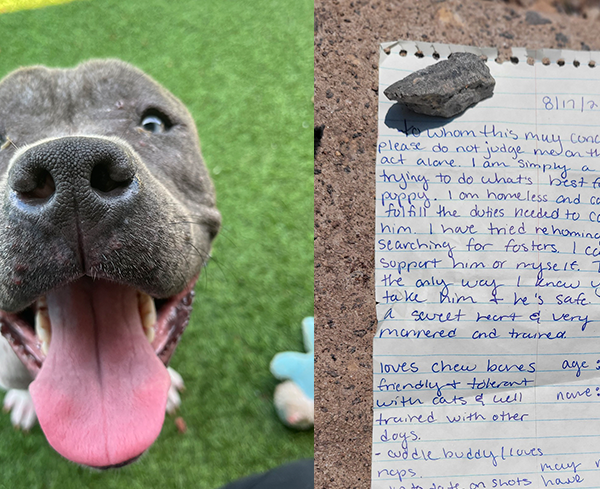 8/17/2
To whom this may conc
please do not judge me on th
act alone. I am simply a
trying to do what's best f
puppy. I am homeless and ca
fulfill the duties needed to c
him. I have tried rehomin
searching for fosters. I ca
support him or myself. T
the only way I knew y
take him & he's safe.
a sweet heart & very
mannered and trained.
loves chew bones age:
friendly & tolerant
with cats & well name:
trained with other
dogs.
- cuddle buddy/loves
naps. may
up to date on shots have